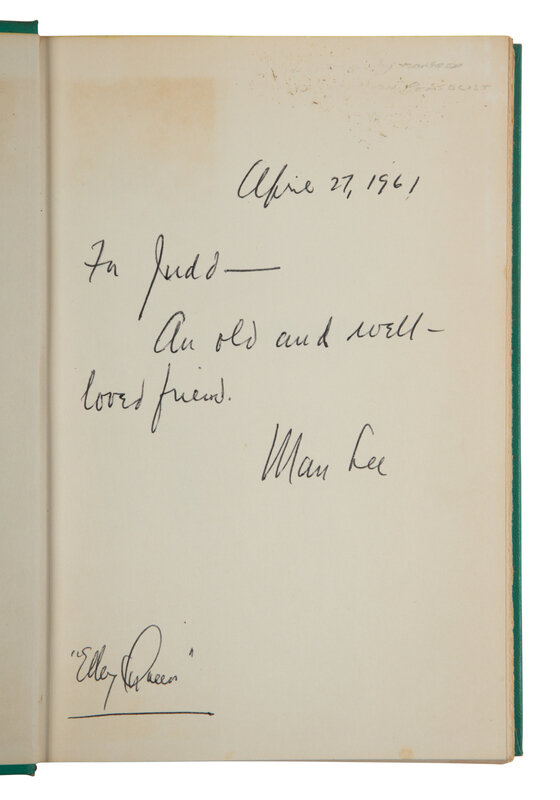 April 27, 1961
For Judd—
An old and well-
loved friend.
Man Lee
"Ellery Queen"